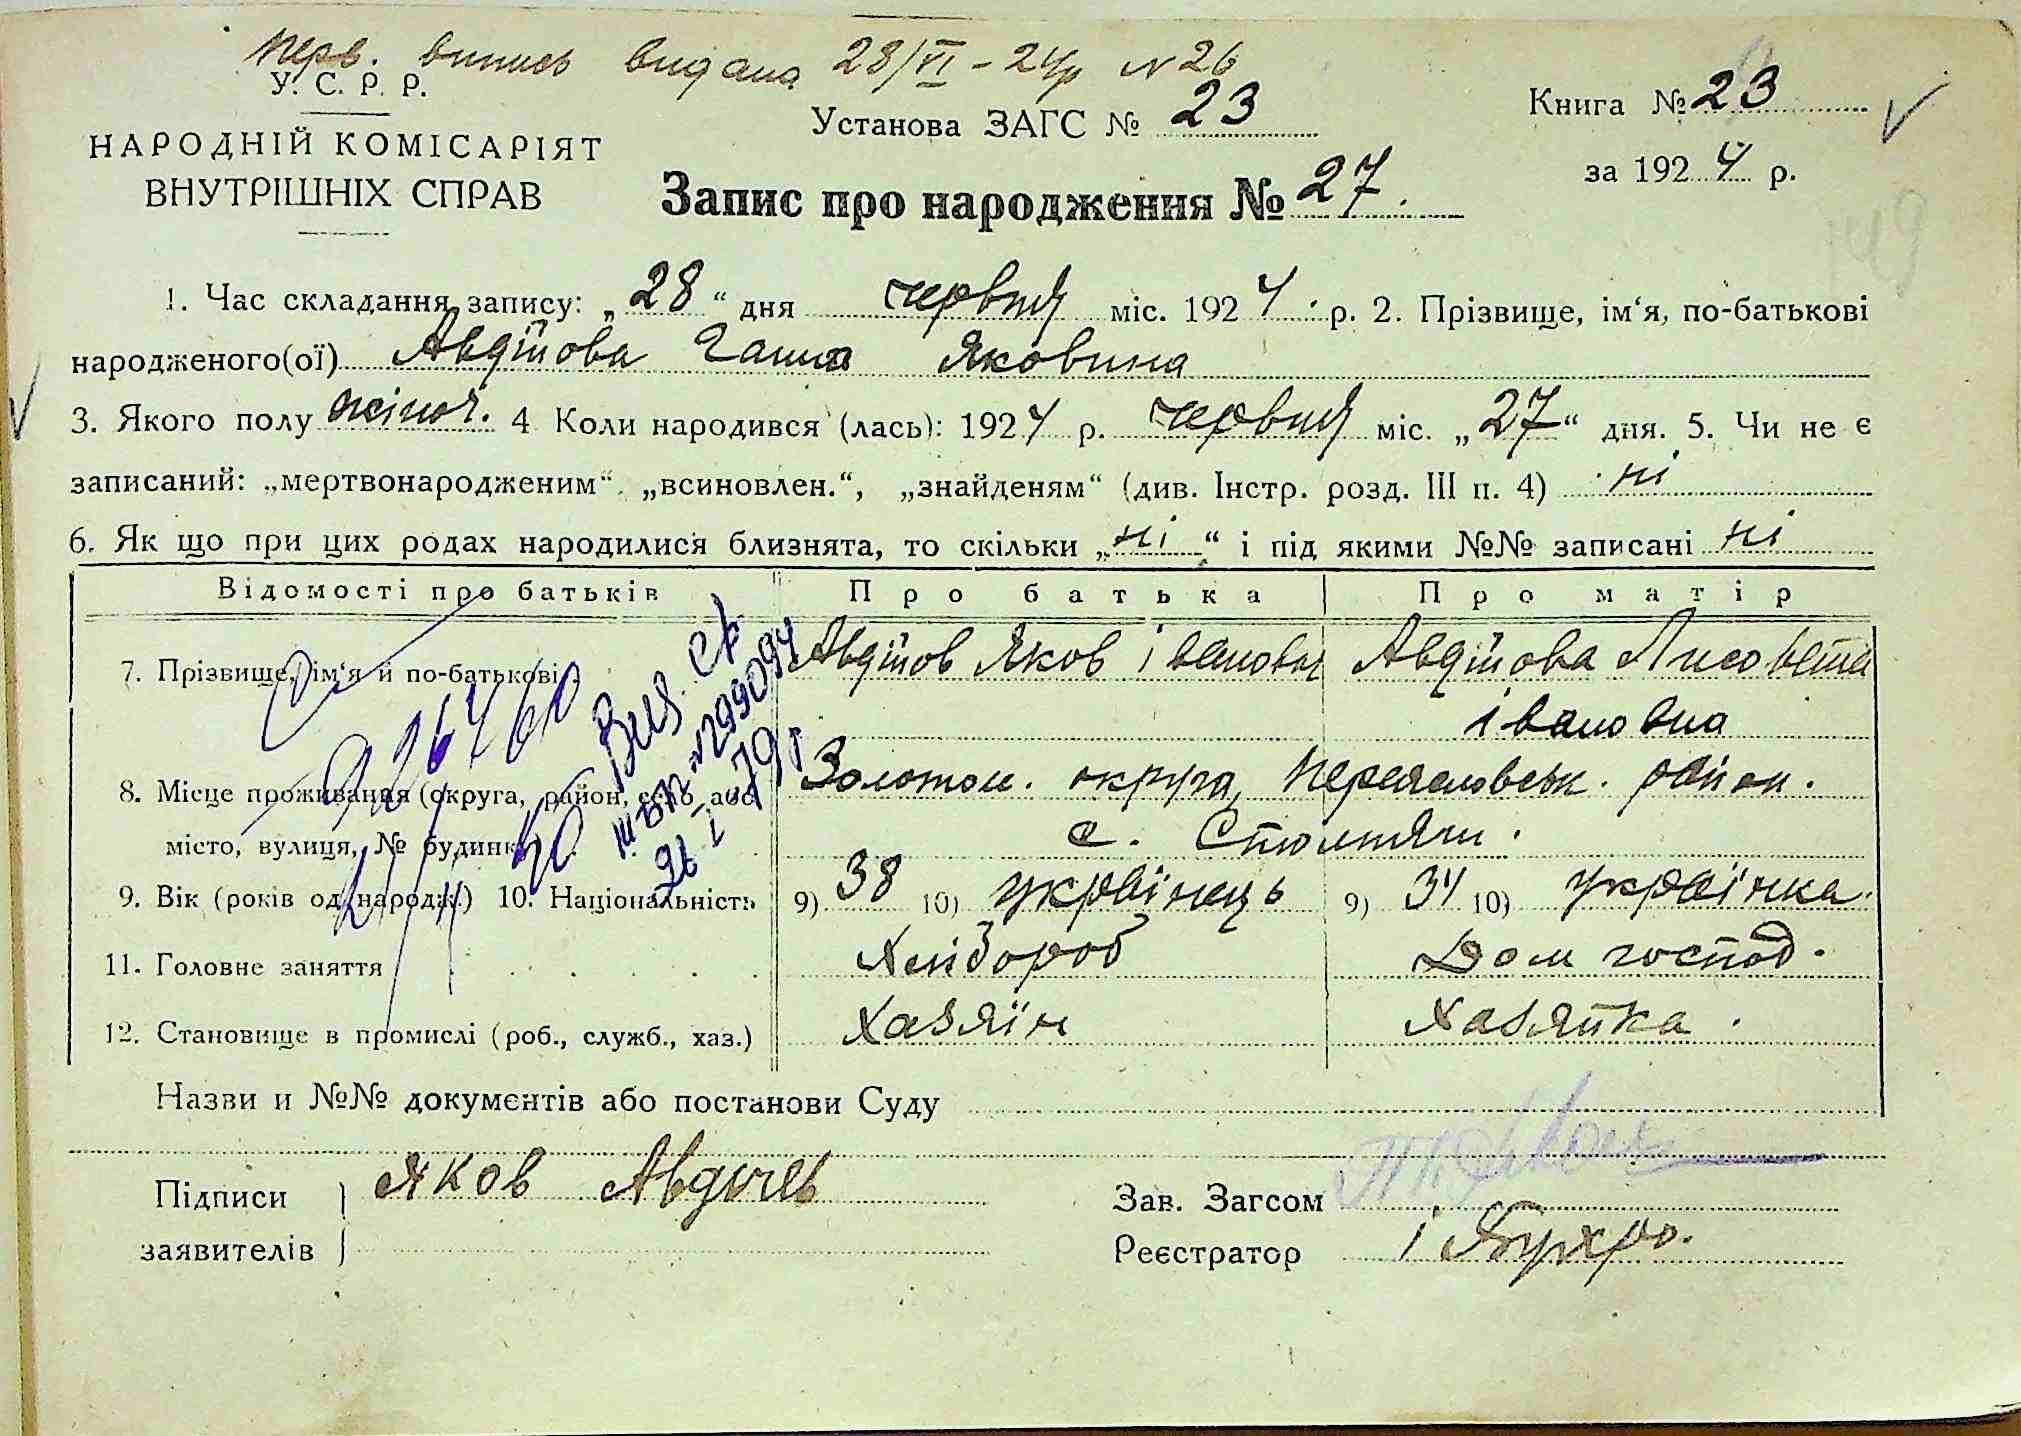 перв. випись видана 28/VI – 24р N 26
У. С. Р. Р.
НАРОДНІЙ КОМІСАРІЯТ
ВНУТРІШНІХ СПРАВ
Установа ЗАГС № 23
Книга № 23
за 1924 р.
Запис про народження № 27.
1. Час складання запису: „28“ дня червня міс. 1924 р. 2. Прізвище, ім‘я, по-батькові
народженого(ої) Авдійова Ганна Яковина
3. Якого полу жіноч. 4 Коли народився (лась): 1924 р. червня міс. „27“ дня. 5. Чи не є
записаний: „мертвонародженим“. „всиновлен.“, „знайденям“ (див. Інстр. розд. III п. 4) ні
6. Як що при цих родах народилися близнята, то скільки „ні“ і під якими №№ записані ні
Відомості про батьків Про батька Про матір
7. Прізвище, ім‘я й по-батькові Авдійов Яков Іванович Авдійова Лисовета
Івановна
8. Місце проживання (округа, район, село або Золотон. округа, Переяславськ. район.
місто, вулиця, № будинк с. Стовпяги.
9. Вік (років од народж.) 10. Національність 9) 38 10) українець 9) 34 10) українка.
11. Головне заняття Хлібороб Дом господ.
12. Становище в промислі (роб., служб., хаз.) Хазяїн Хазяйка.
Вид. св.
№ 299094
26 I 79р
Назви и №№ документів або постанови Суду
Підписи Яков Авдыев
заявителів
Зав. Загсом
Реєстратор